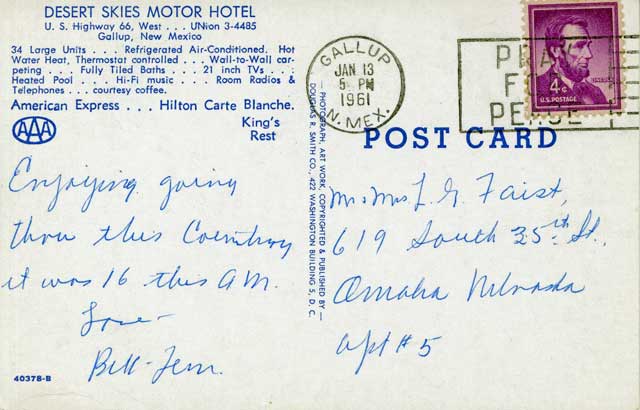 DESERT SKIES MOTOR HOTEL
U. S. Highway 66, West . . . UNion 3-4485
Gallup, New Mexico
34 Large Units . . . Refrigerated Air-Conditioned. Hot
Water Heat, Thermostat controlled . . . Wall-to-Wall car-
peting . . . Fully Tiled Baths . . . 21 inch TVs . . .
Heated Pool . . . Hi-Fi music . . . Room Radios &
Telephones . . . courtesy coffee.
American Express . . . Hilton Carte Blanche.
AAA
King's
Rest
Enjoying going
thru this Country
it was 16 this A.M.
Love -
Bill - Fern.
40378-B
PHOTOGRAPH, ART WORK, COPYRIGHTED & PUBLISHED BY —
DOUGLAS R. SMITH CO., 422 WASHINGTON BUILDING 5, D. C.
GALLUP
JAN 13
5 PM
1961
N. MEX.
PRAY
FOR
PEACE
4¢
U.S. POSTAGE
POST CARD
Mr. & Mrs. L. G. Faist,
619 South 35th St.,
Omaha Nebraska
apt # 5